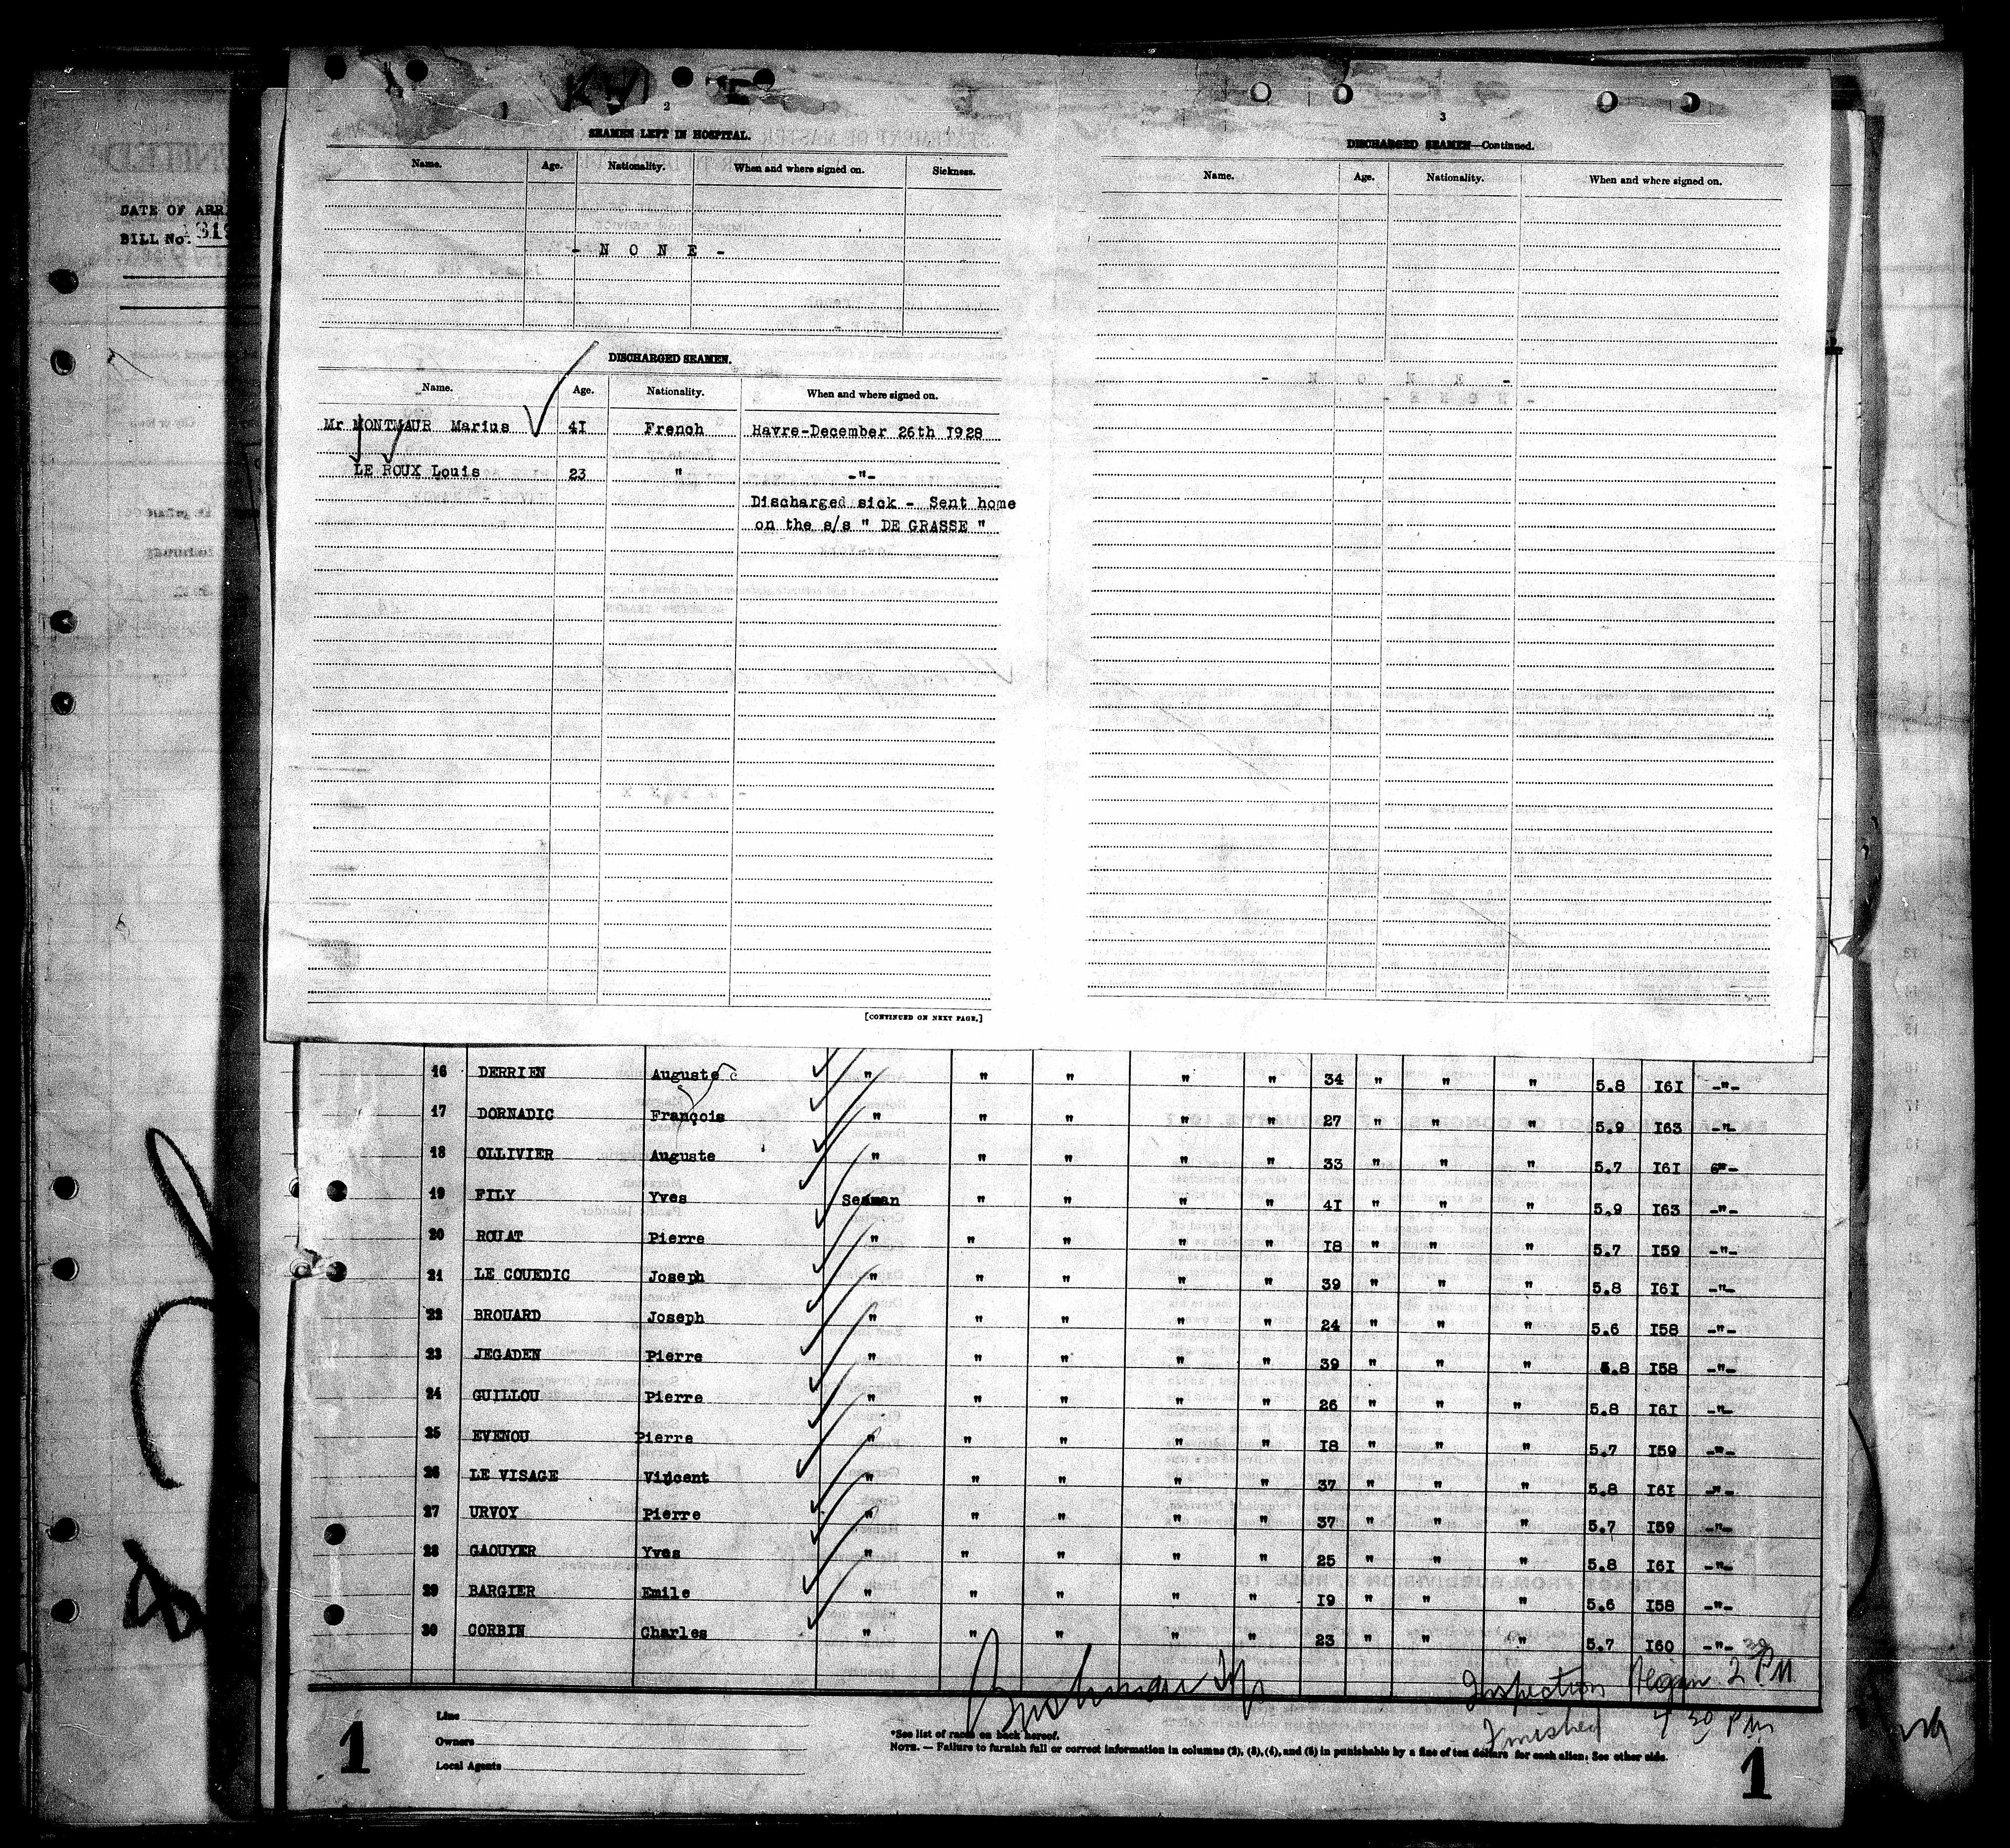 DATE OF ARR
BILL No.
2
SEAMEN LEFT IN HOSPITAL.
Name. Age. Nationality. When and where signed on. Sickness.
- N O N E -
DISCHARGED SEAMEN.
Name. Age. Nationality. When and where signed on.
Mr MONTMAUR Marius 4I French Havre-December 26th I928
LE ROUX Louis 23 " -"-
Discharged sick - Sent home
on the s/s " DE GRASSE "
[CONTINUED ON NEXT PAGE.]
3
DISCHARGED SEAMEN—Continued.
Name. Age. Nationality. When and where signed on.
16 DERRIEN Auguste " " " " " 34 " " " 5.8 I6I -"-
17 DORNADIC François " " " " " 27 " " " 5.9 I63 -"-
18 OLLIVIER Auguste " " " " " 33 " " " 5.7 I6I -"-
19 FILY Yves Seaman " " " " 4I " " " 5.9 I63 -"-
20 ROUAT Pierre " " " " " I8 " " " 5.7 I59 -"-
21 LE COUEDIC Joseph " " " " " 39 " " " 5.8 I6I -"-
22 BROUARD Joseph " " " " " 24 " " " 5.6 I58 -"-
23 JEGADEN Pierre " " " " " 39 " " " 5.8 I58 -"-
24 GUILLOU Pierre " " " " " 26 " " " 5.8 I6I -"-
25 EVENOU Pierre " " " " " I8 " " " 5.7 I59 -"-
26 LE VISAGE Vincent " " " " " 37 " " " 5.8 I6I -"-
27 URVOY Pierre " " " " " 37 " " " 5.7 I59 -"-
28 GAOUYER Yves " " " " " 25 " " " 5.8 I6I -"-
29 BARGIER Emile " " " " " I9 " " " 5.6 I58 -"-
30 CORBIN Charles " " " " " 23 " " " 5.7 I60 -"-
Inspection Began 2 30 PM
Finished 4 30 PM
Line
Owners
Local Agents
*See list of races on back hereof.
NOTE. — Failure to furnish full or correct information in columns (2), (3), (4), and (5) in punishable by a fine of ten dollars for each alien. See other side.
1
1